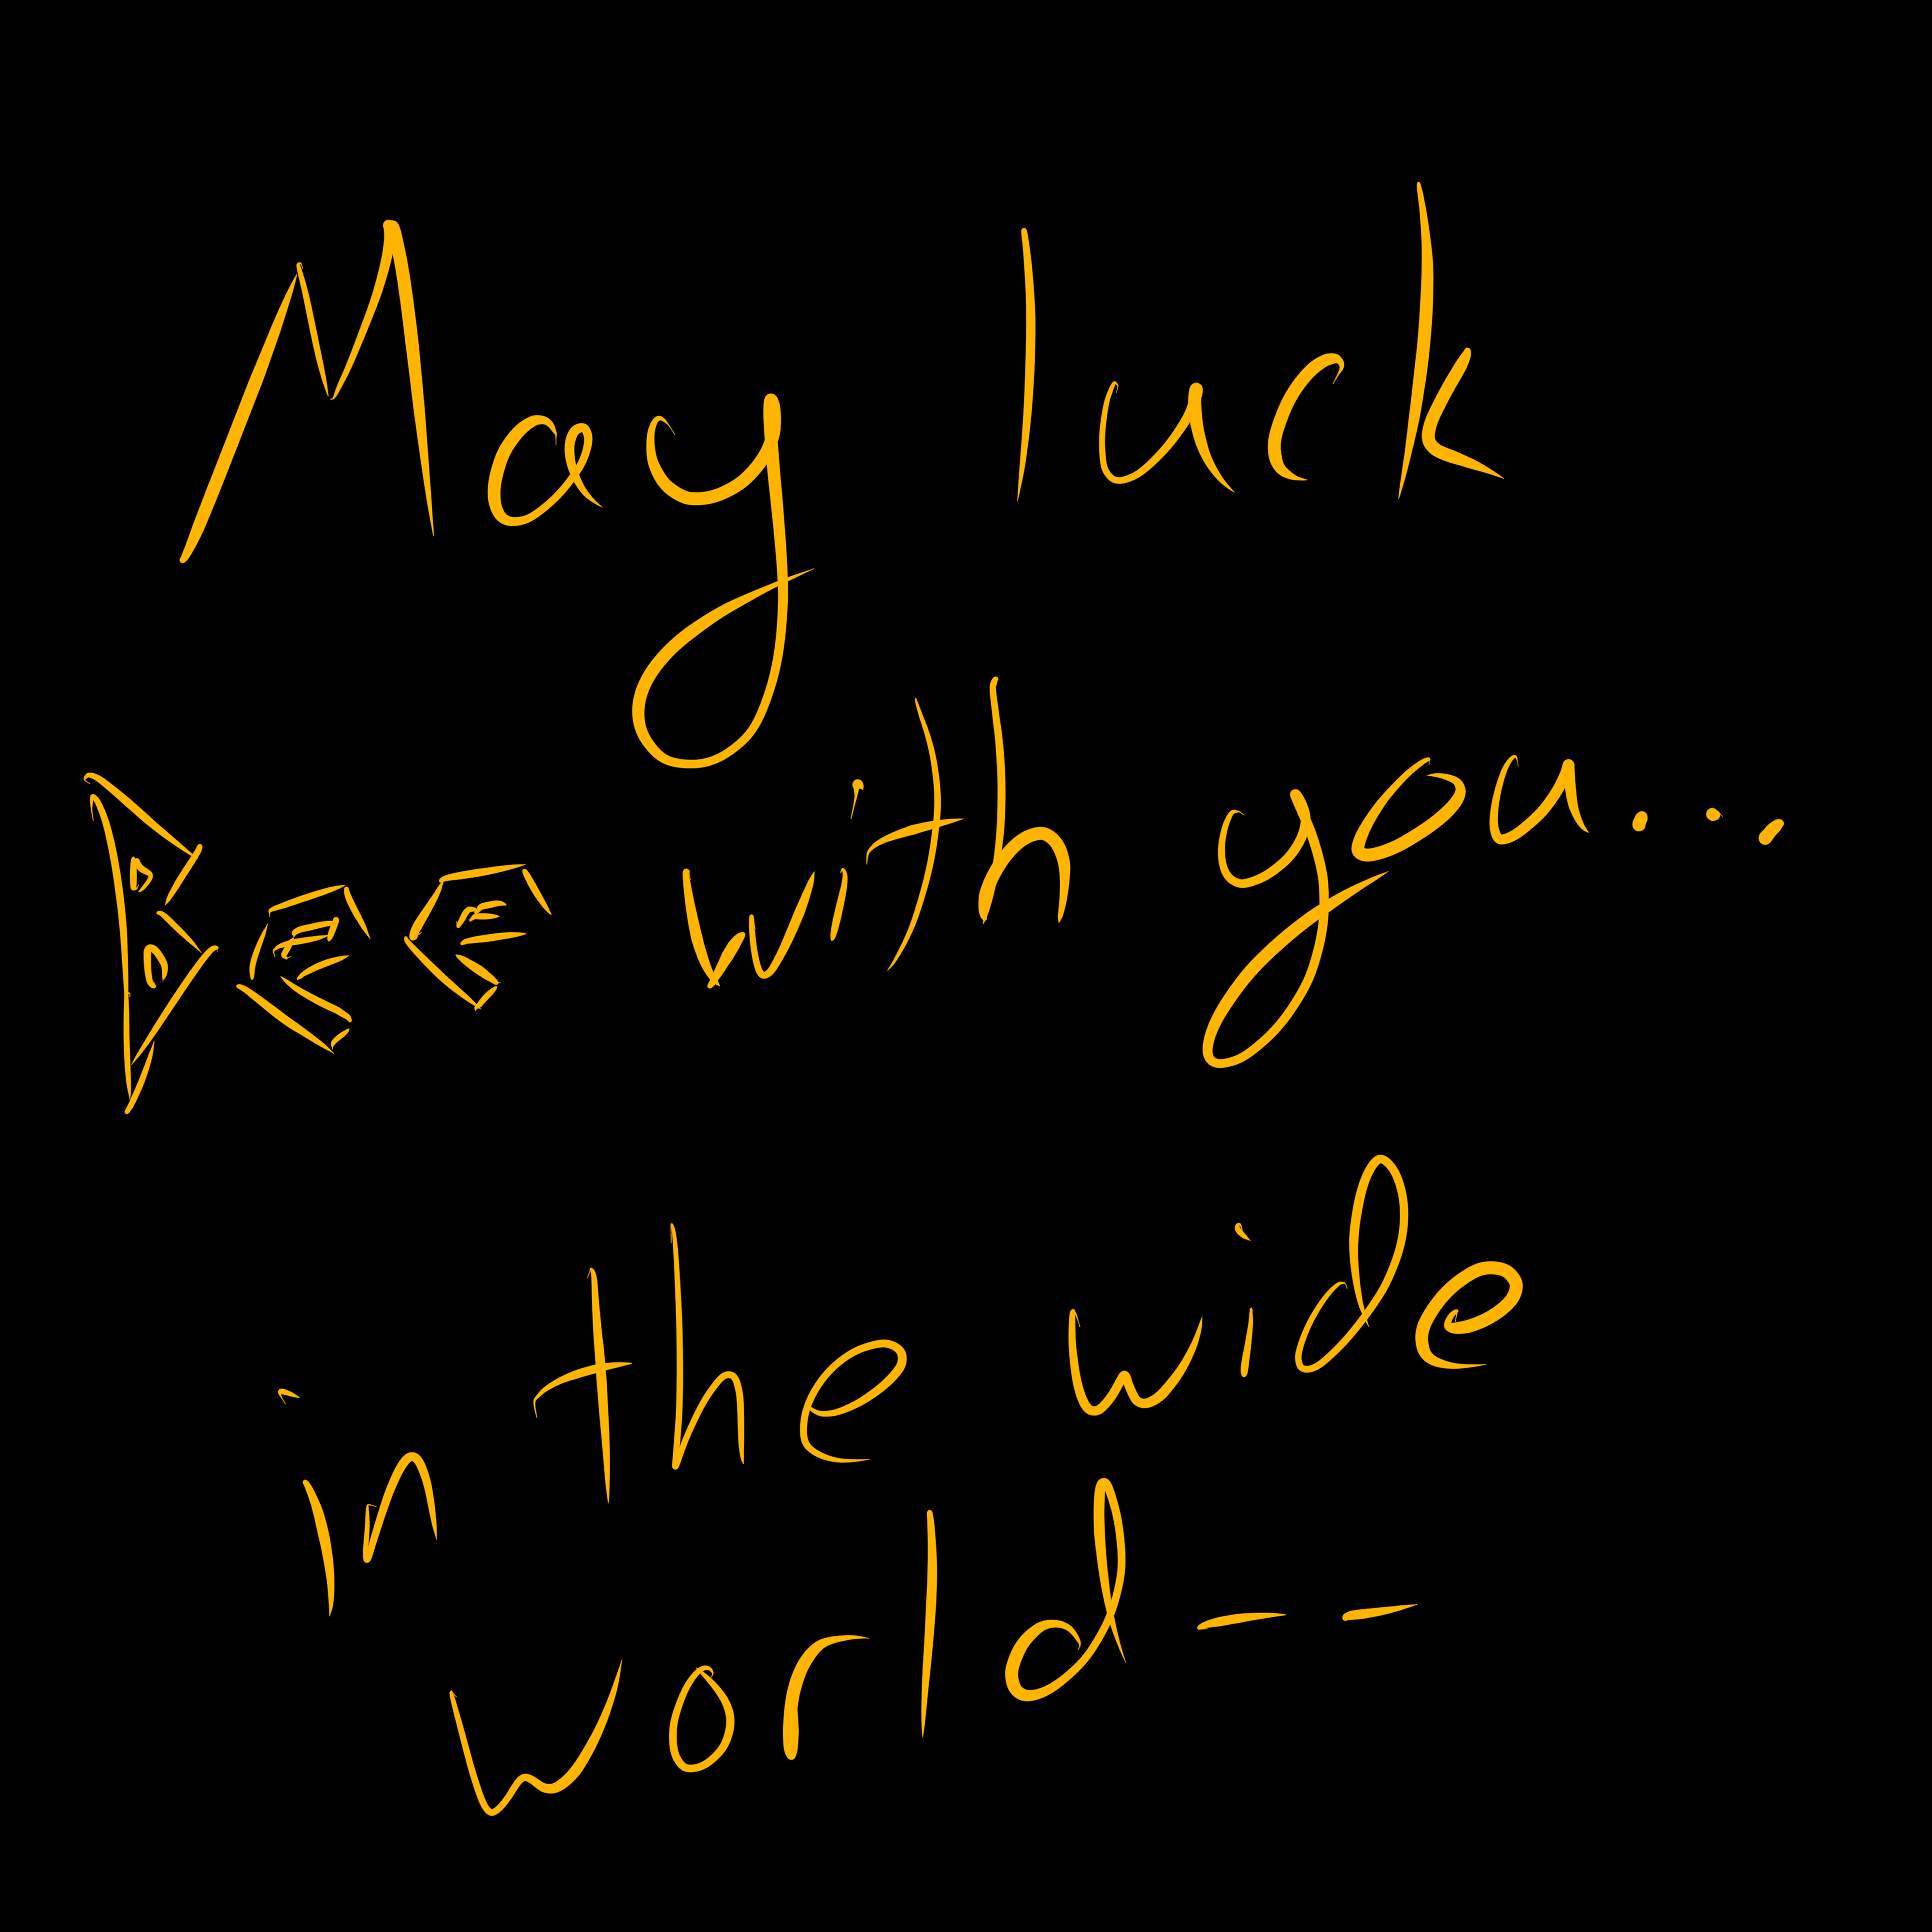 May luck
Bee with you...
in the wide
world--